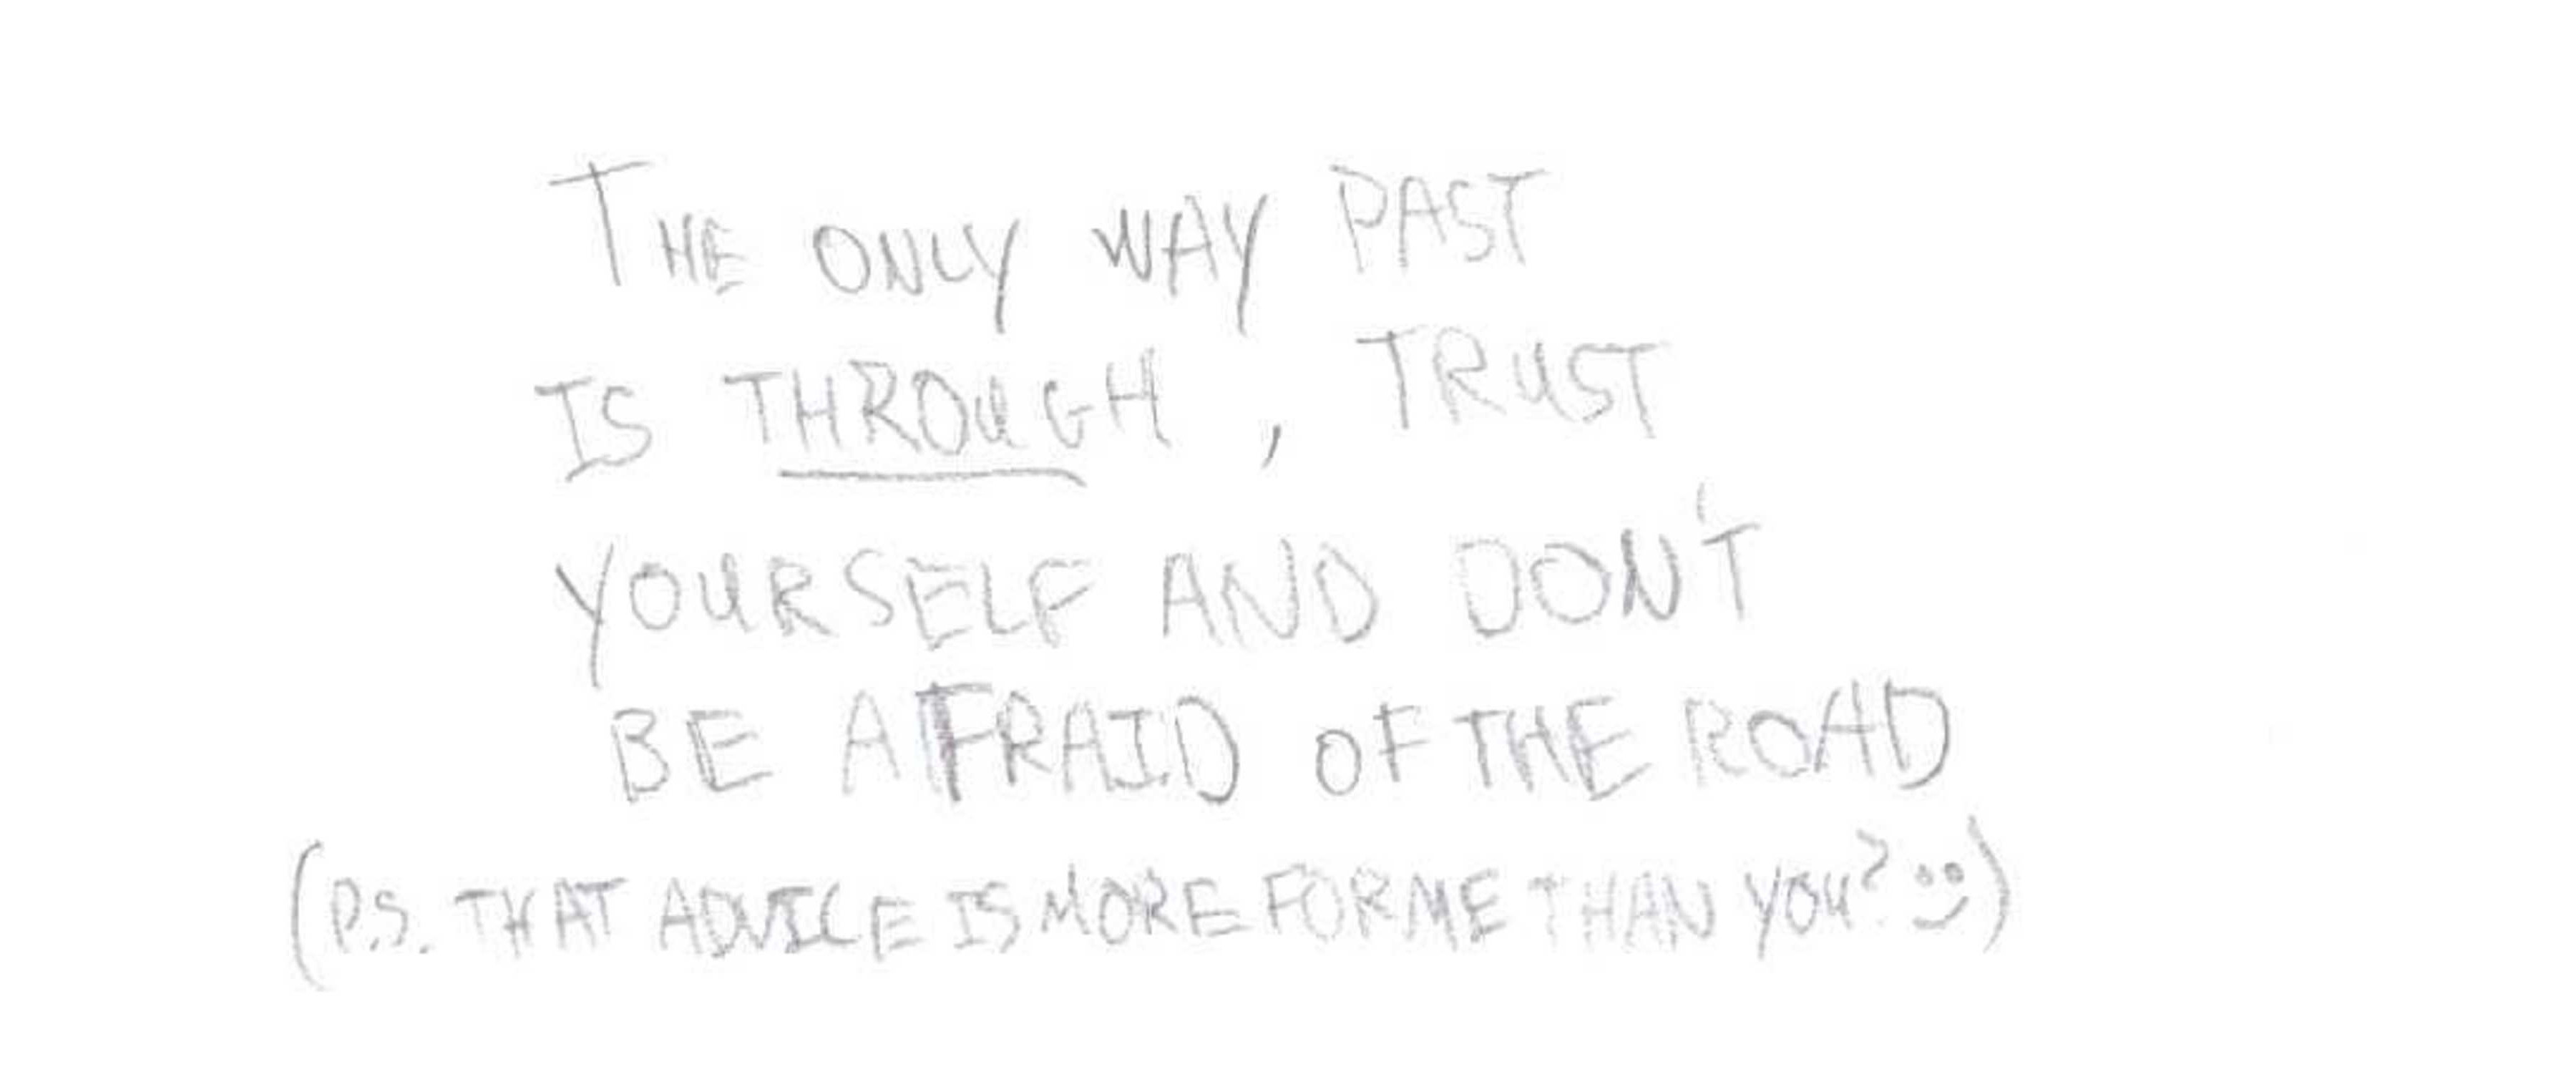 THE ONLY WAY PAST
IS THROUGH, TRUST
YOURSELF AND DON'T
BE AFRAID OF THE ROAD
(P.S. THAT ADVICE IS MORE FOR ME THAN YOU? :))